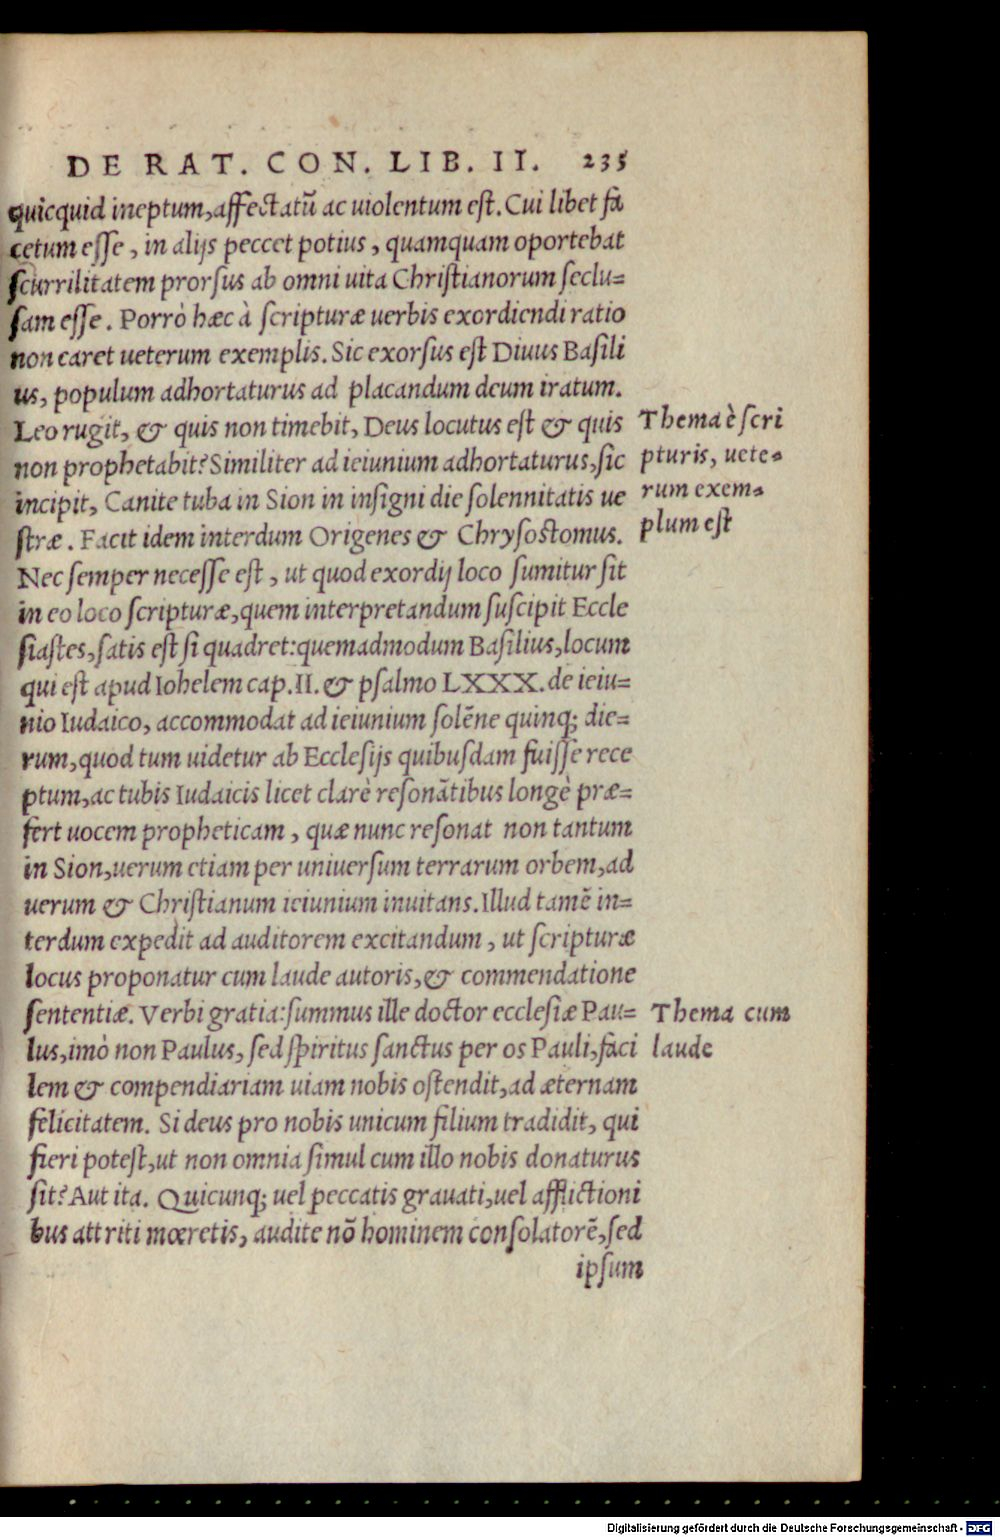 DE RAT. CON. LIB. II. 235
quicquid ineptum,affectatũ ac uiolentum est. Cui libet fa
cetum esse, in alijs peccet potius, quamquam oportebat
scurrilitatem prorsus ab omni uita Christianorum seclu=
sam esse. Porrò hæc à scripturæ uerbis exordiendi ratio
non caret ueterum exemplis. Sic exorsus est Diuus Basili
us, populum adhortaturus ad placandum deum iratum.
Leo rugit, & quis non timebit, Deus locutus est & quis
non prophetabit? Similiter ad ieiunium adhortaturus, sic
incipit, Canite tuba in Sion in insigni die solennitatis ue
stræ. Facit idem interdum Origenes & Chrysostomus.
Thema è scri
pturis, uete=
rum exem=
plum est
Nec semper necesse est, ut quod exordij loco sumitur sit
in eo loco scripturæ, quem interpretandum suscipit Eccle
siastes, satis est si quadret: quemadmodum Basilius, locum
qui est apud Iohelem cap. II. & psalmo LXXX. de ieiu=
nio Iudaico, accommodat ad ieiunium solẽne quinq; die=
rum, quod tum uidetur ab Ecclesijs quibusdam fuisse rece
ptum, ac tubis Iudaicis licet clarè resonãtibus longè præ=
fert uocem propheticam, quæ nunc resonat non tantum
in Sion, uerum etiam per uniuersum terrarum orbem, ad
uerum & Christianum ieiunium inuitans. Illud tamẽ in=
terdum expedit ad auditorem excitandum, ut scripturæ
locus proponatur cum laude autoris, & commendatione
sententiæ. Verbi gratia: summus ille doctor ecclesiæ Pau=
lus, imò non Paulus, sed spiritus sanctus per os Pauli, faci
Thema cum
laude
lem & compendiariam uiam nobis ostendit, ad æternam
felicitatem. Si deus pro nobis unicum filium tradidit, qui
fieri potest, ut non omnia simul cum illo nobis donaturus
sit? Aut ita. Quicunq; uel peccatis grauati, uel afflictioni
bus attriti mœretis, audite nõ hominem consolatorẽ, sed
ipsum
Digitalisierung gefördert durch die Deutsche Forschungsgemeinschaft - DFG